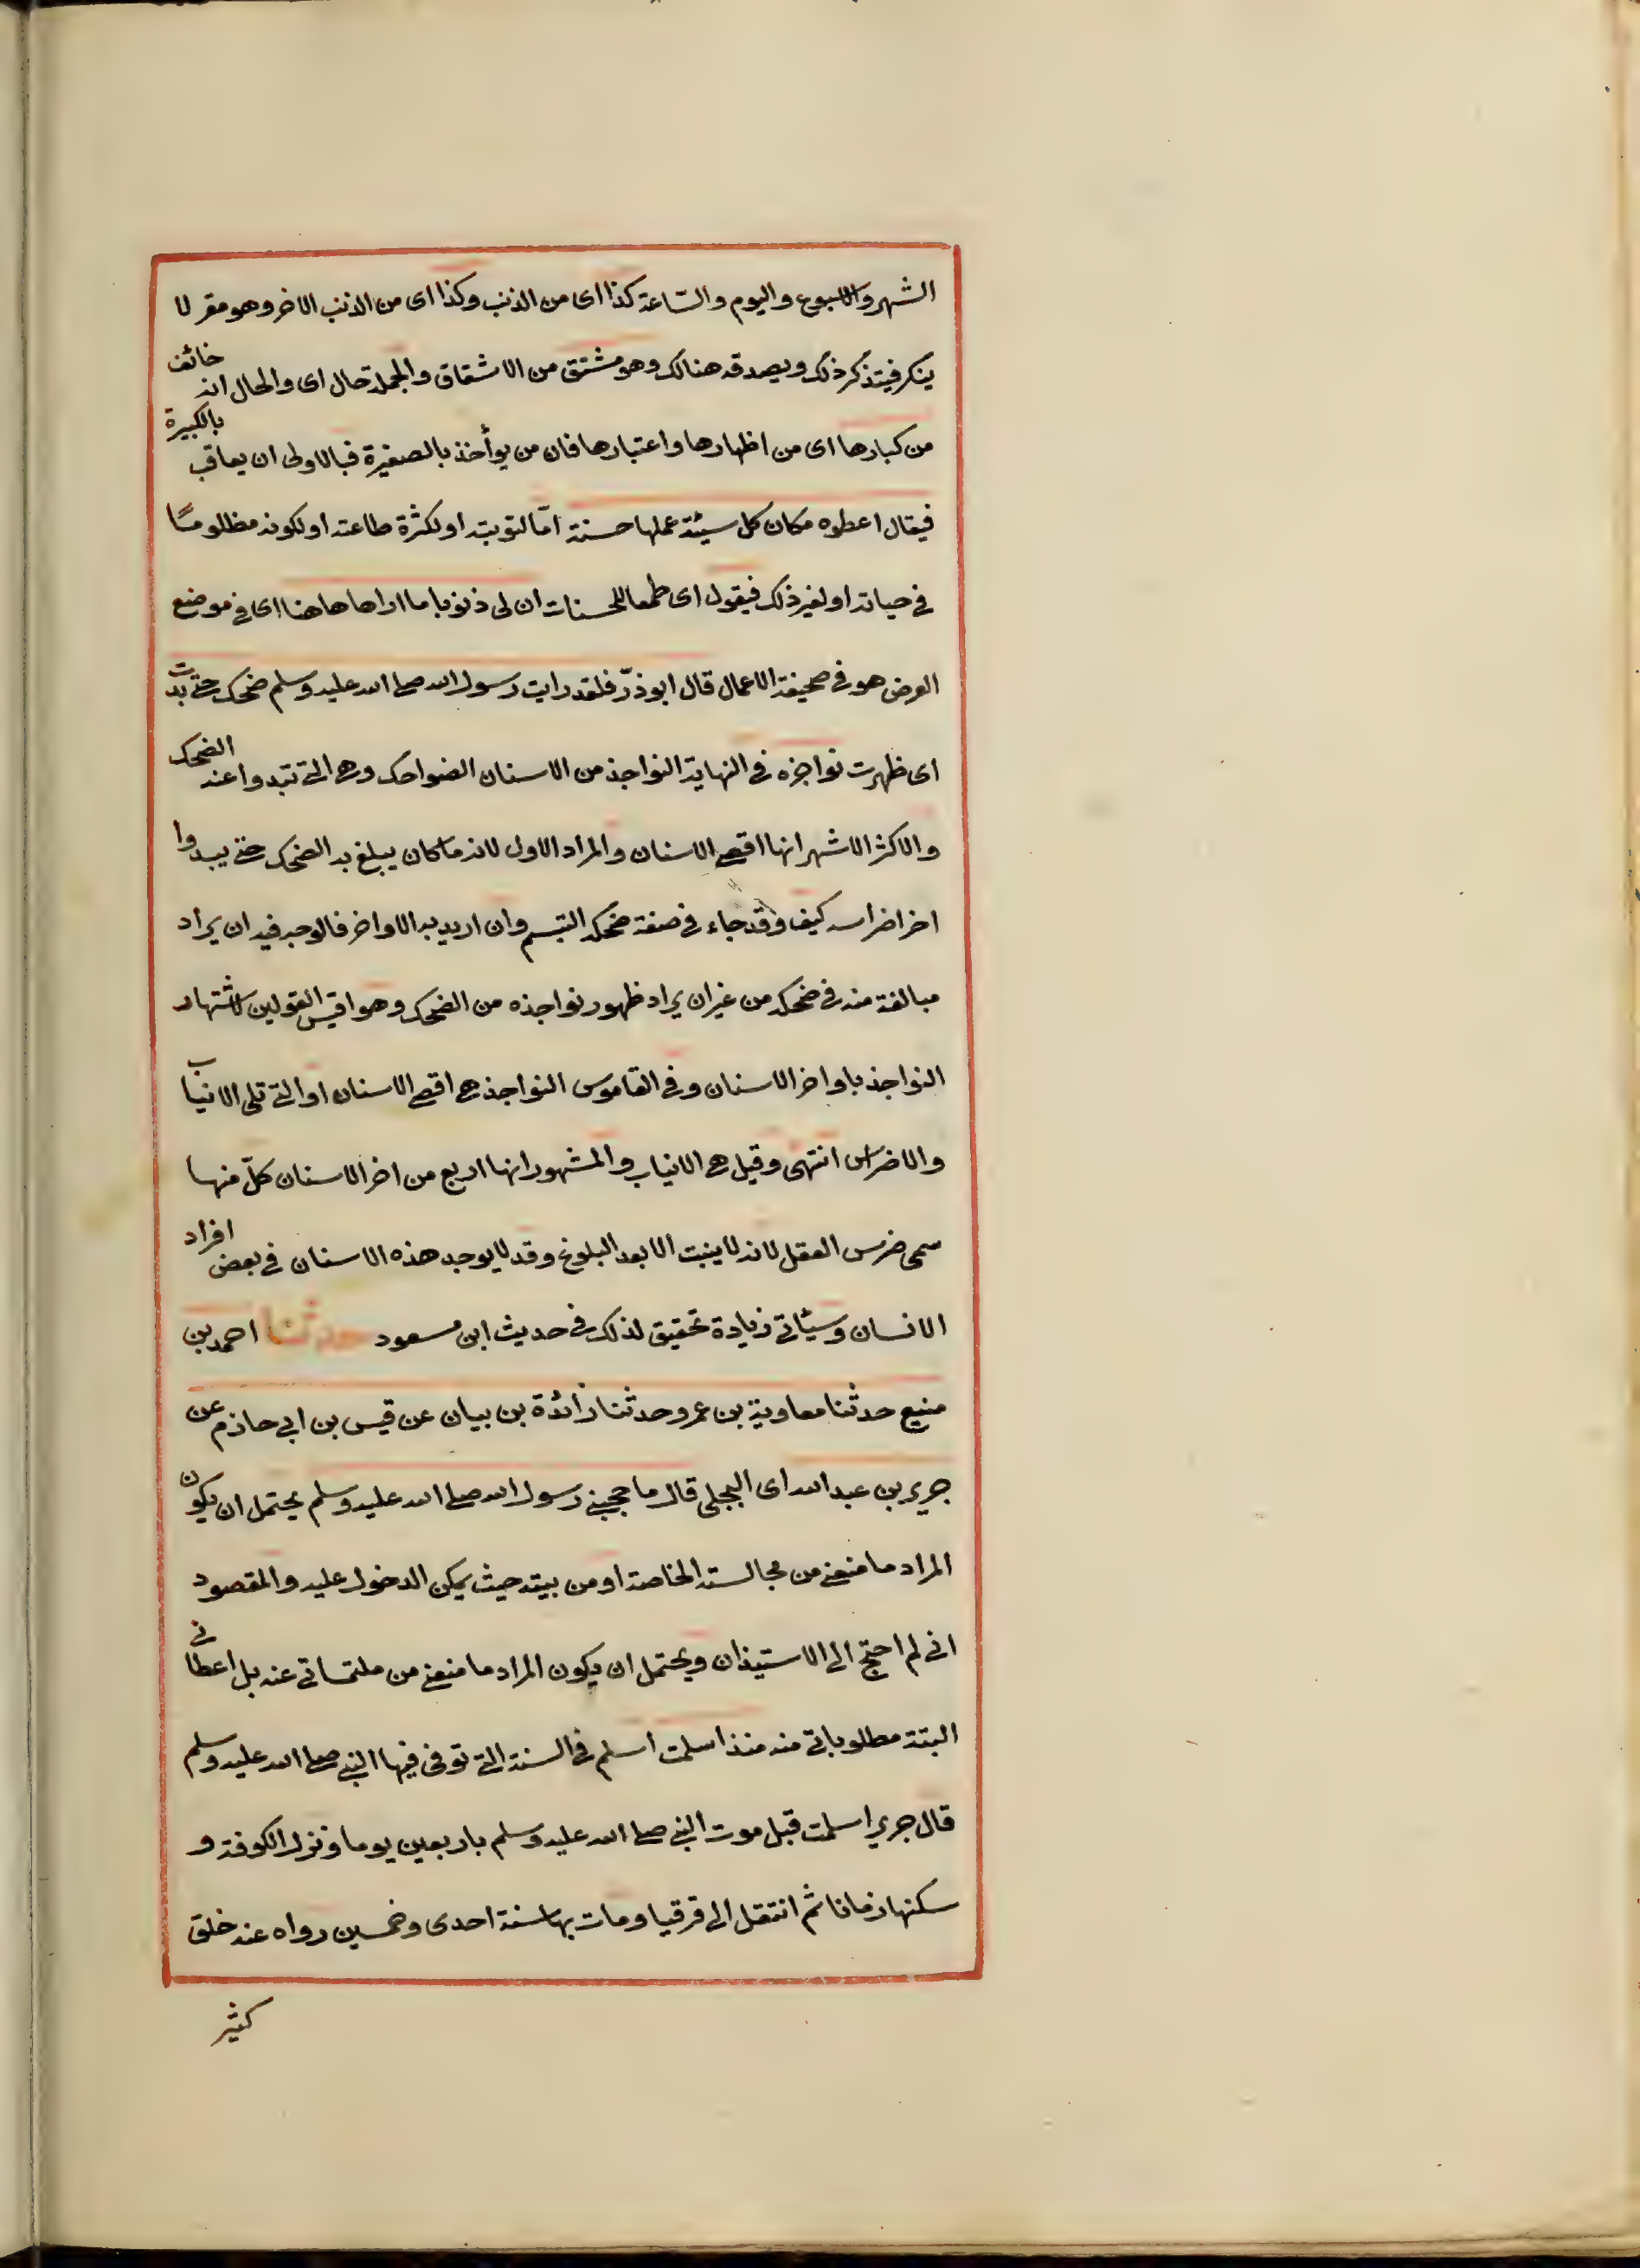 الشهر والاسبوع واليوم والسّاعة كذا اى من الذنب وكذا اى من الذنب الاخر وهو مقر لا
ينكر فيتذكر ذلك ويصدقه هنالك وهو مشتق من الاشقاق والجملة حال اى والحال انه خائف
من كبارها اى من اظهارها واعتبارها فان من يوأخذ بالصغيرة فبالاولى ان يعاقب بالكبيرة
فيقال اعطوه مكان كل سيئة عملها حسنة امّا لتوبته او لكثرة طاعته او لكونه مظلومًا
في حياته او لغير ذلك فيقول اى طمعا للحسنات ان لى ذنوبا ما اراها هاهنا اى في موضع
العرض هو في صحيفة الاعمال قال ابو ذرّ فلقد رايت رسول الله صلى الله عليه وسلم ضحك حتى بدت
اى ظهرت نواجزه في النهاية النواجذ من الاسنان الضواحك وهى التى تبدوا عند الضحك
والاكثر الاشهر انها اقصى الاسنان والمراد الاول لانه ما كان يبلغ به الضحك حتى يبدوا
اخر اضراسه كيف وقد جاء في صفة ضحكه التبسم وان اريد به الاواخر فالوجه فيه ان يراد
مبالغة منه في ضحكه من غير ان يراد ظهور نواجذه من الضحك وهو اقيس القولين لاشتهار
النواجذ باواخر الاسنان وفي القاموس النواجذ هى اقصى الاسنان او التى تلى الانياب
والاضراس انتهى وقيل هى الانياب والمشهور انها اربع من اخر الاسنان كلّ منها
سمى ضرس العقل لانه لا ينبت الا بعد البلوغ وقد لا يوجد هذه الاسنان في بعض افراد
الانسان وسيأتى زيادة تحقيق لذلك في حديث ابن مسعود حدثنا احمد بن
منيع حدثنا معاوية بن عمرو حدثنا زائدة بن بيان عن قيس بن ابي حازم عن
جرير بن عبد الله اى البجلى قال ما حجبنى رسول الله صلى الله عليه وسلم يحتمل ان يكون
المراد ما منعنى من مجالسته الخاصة او من بيته حيث يمكن الدخول عليه والمقصود
انى لم احتج الى الاستيذان ويحتمل ان يكون المراد ما منعنى من ملتمساتى عنه بل اعطانى
البتة مطلوباتى منه منذ اسلمت اسلم في السنة التى توفى فيها النبى صلى الله عليه وسلم
قال جرير اسلمت قبل موت النبى صلى الله عليه وسلم باربعين يوما ونزل الكوفة و
سكنها زمانا ثم انتقل الى قرقيا ومات بها سنة احدى وخمسين رواه عنه خلق
كثير